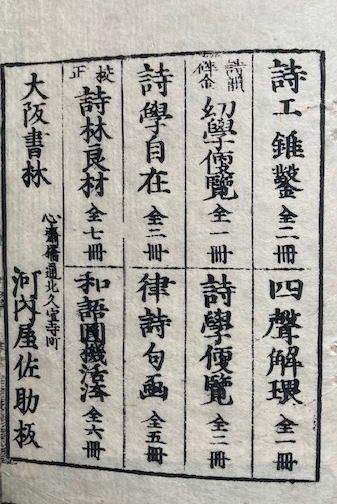 詩工錐鑿 全二冊
四聲解環 全一冊
詩韻
碎金
幼學便覽 全一冊
詩學便覽 全二冊
詩學自在 全二冊
律詩句函 全五冊
校正
詩林良材 全七冊
和語圓機活法 全六冊
大阪書林
心齋橋通北久宝寺町
河内屋佐助板